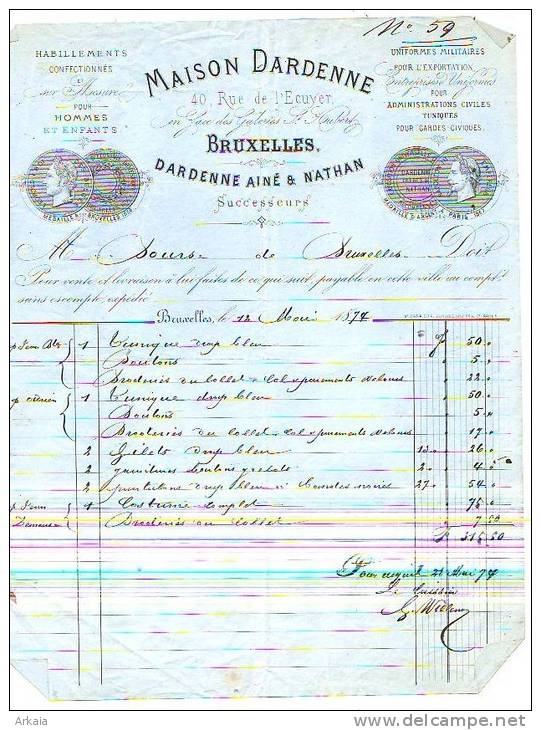 No 59
HABILLEMENTS
CONFECTIONNÉS
ET
sur Mesure
POUR
HOMMES
ET ENFANTS
MAISON DARDENNE
40, Rue de l'Ecuyer,
en face des Galeries St Hubert
BRUXELLES.
DARDENNE AINÉ & NATHAN
Successeurs
UNIFORMES MILITAIRES
POUR L'EXPORTATION
Entreprise d'Uniformes
POUR
ADMINISTRATIONS CIVILES
TUNIQUES
POUR GARDES CIVIQUES.
DARDENNE
NATHAN
M. Bourse de Bruxelles Doit
Pour vente et livraison à lui faites de ce qui suit, payable en cette ville au compt.
sans escompte, expédié
Bruxelles, le 12 Mai 1874
1 Tunique drap bleu 50 "
Boutons 5 "
Broderies du collet & parements velours 22 "
1 Tunique drap bleu 50 "
Boutons 5 "
Broderies du collet & parements velours 17 "
2 Gilets drap bleu 13 " 26 "
2 garnitures boutons grelots 2 " 4 50
2 pantalons drap bleu à bandes noires 27 " 54 "
1 Costume complet 75 "
Broderies du collet 7 50
315 50
Pour acquit 21 Mai 74
Arkaia
www.delcampe.net